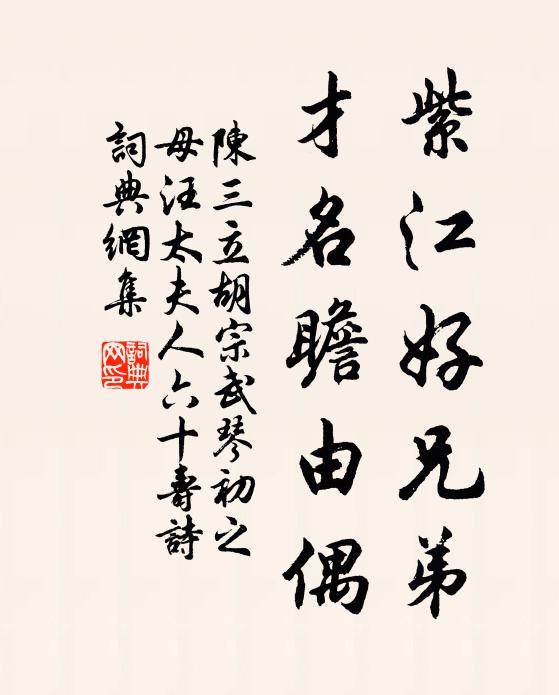 紫江好兄弟
才名瞻由偶
陳三立胡宗武琴初之
母汪太夫人六十壽詩
詞典網集
詞典网印